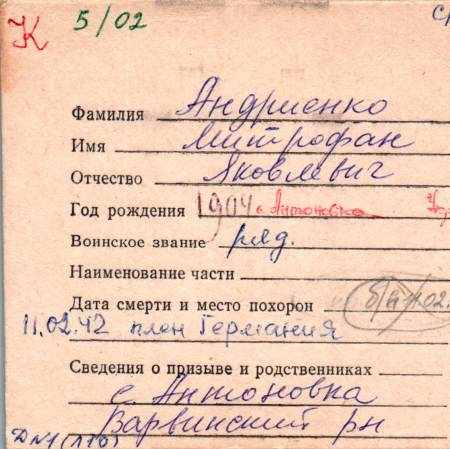 К 5/02
Фамилия Андриенко
Имя Митрофан
Отчество Яковлевич
Год рождения 1904 с. Антоновка
Воинское звание ряд.
Наименование части
Дата смерти и место похорон
11.02.42 плен Германия
Сведения о призыве и родственниках
с. Антоновка
Варвинский рн